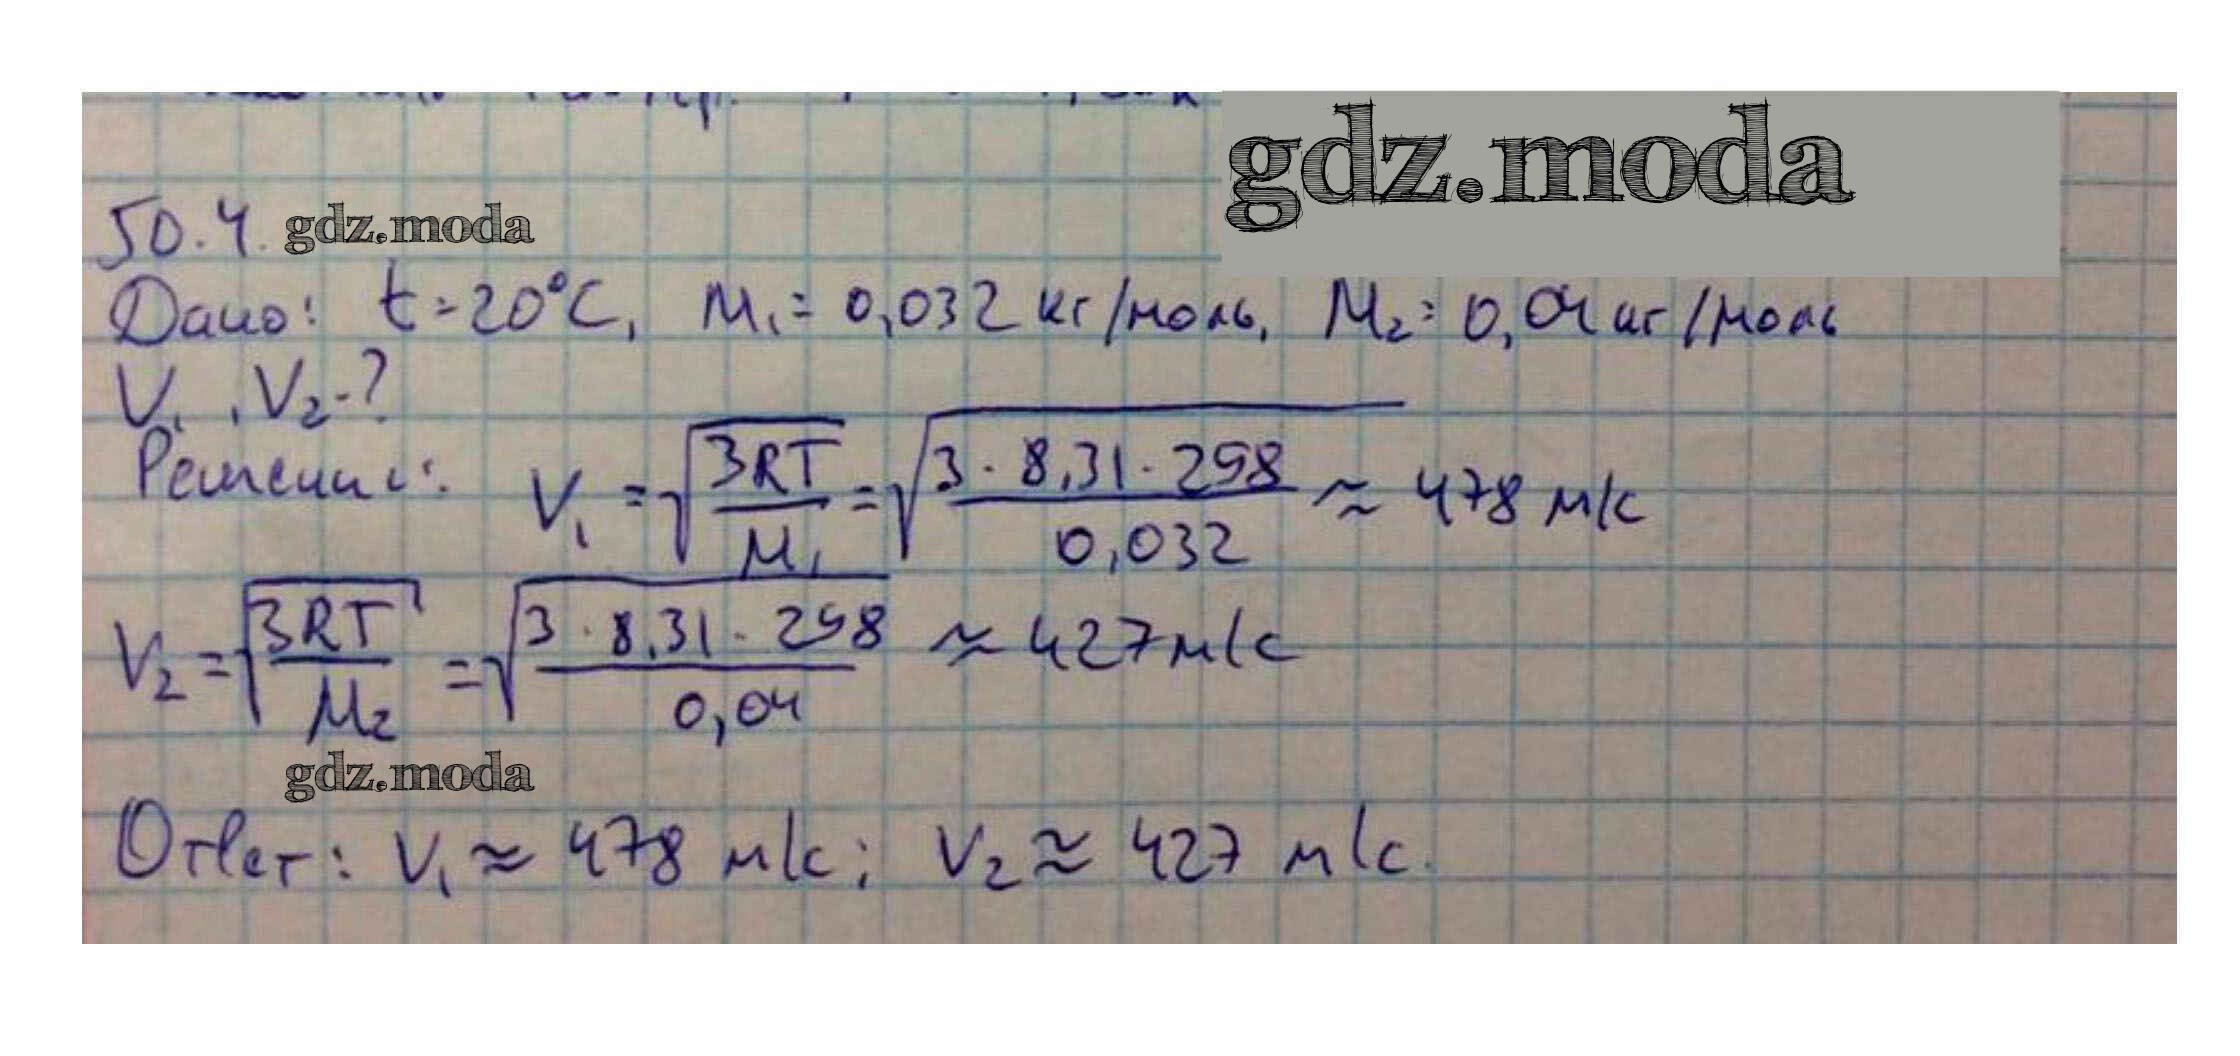 gdz.moda
50.4. gdz.moda
Дано: t=20°C, M₁= 0,032 кг/моль, M₂= 0,04 кг/моль
V₁, V₂-?
Решение: V₁ = √(3RT/M₁) = √(3·8,31·298/0,032) ≈ 478 м/с
V₂ = √(3RT/M₂) = √(3·8,31·298/0,04) ≈ 427 м/с
gdz.moda
Ответ: V₁ ≈ 478 м/с; V₂ ≈ 427 м/с.